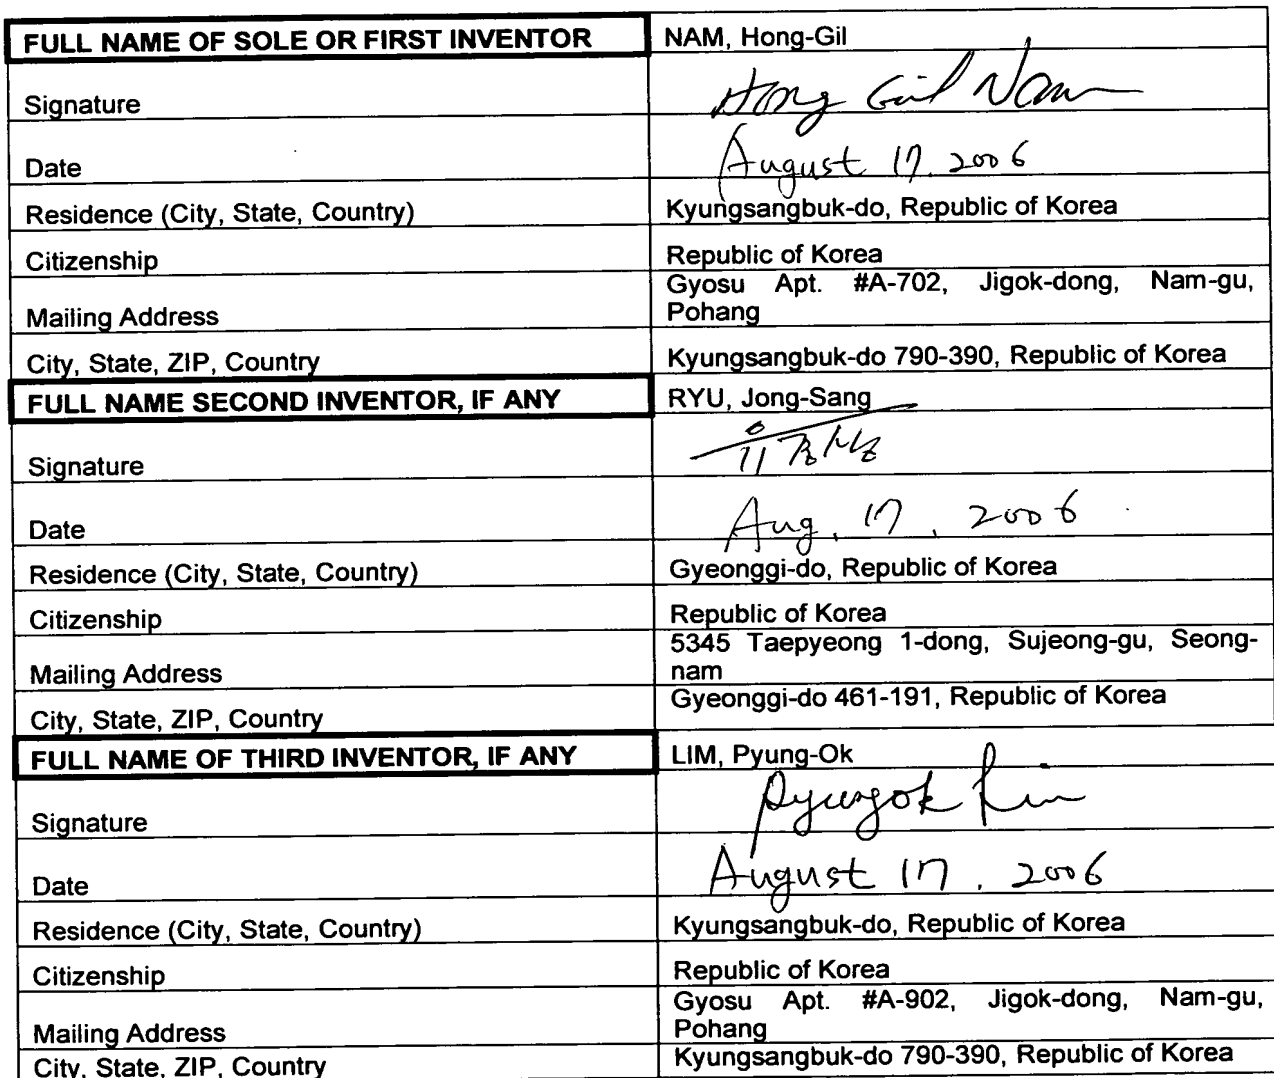 FULL NAME OF SOLE OR FIRST INVENTOR NAM, Hong-Gil
Signature Hong Gil Nam
Date August 17. 2006
Residence (City, State, Country) Kyungsangbuk-do, Republic of Korea
Citizenship Republic of Korea
Mailing Address Gyosu Apt. #A-702, Jigok-dong, Nam-gu,
Pohang
City, State, ZIP, Country Kyungsangbuk-do 790-390, Republic of Korea
FULL NAME SECOND INVENTOR, IF ANY RYU, Jong-Sang
Signature 유종상
Date Aug. 17, 2006
Residence (City, State, Country) Gyeonggi-do, Republic of Korea
Citizenship Republic of Korea
Mailing Address 5345 Taepyeong 1-dong, Sujeong-gu, Seong-
nam
City, State, ZIP, Country Gyeonggi-do 461-191, Republic of Korea
FULL NAME OF THIRD INVENTOR, IF ANY LIM, Pyung-Ok
Signature Pyungok Lim
Date August 17. 2006
Residence (City, State, Country) Kyungsangbuk-do, Republic of Korea
Citizenship Republic of Korea
Mailing Address Gyosu Apt. #A-902, Jigok-dong, Nam-gu,
Pohang
City, State, ZIP, Country Kyungsangbuk-do 790-390, Republic of Korea